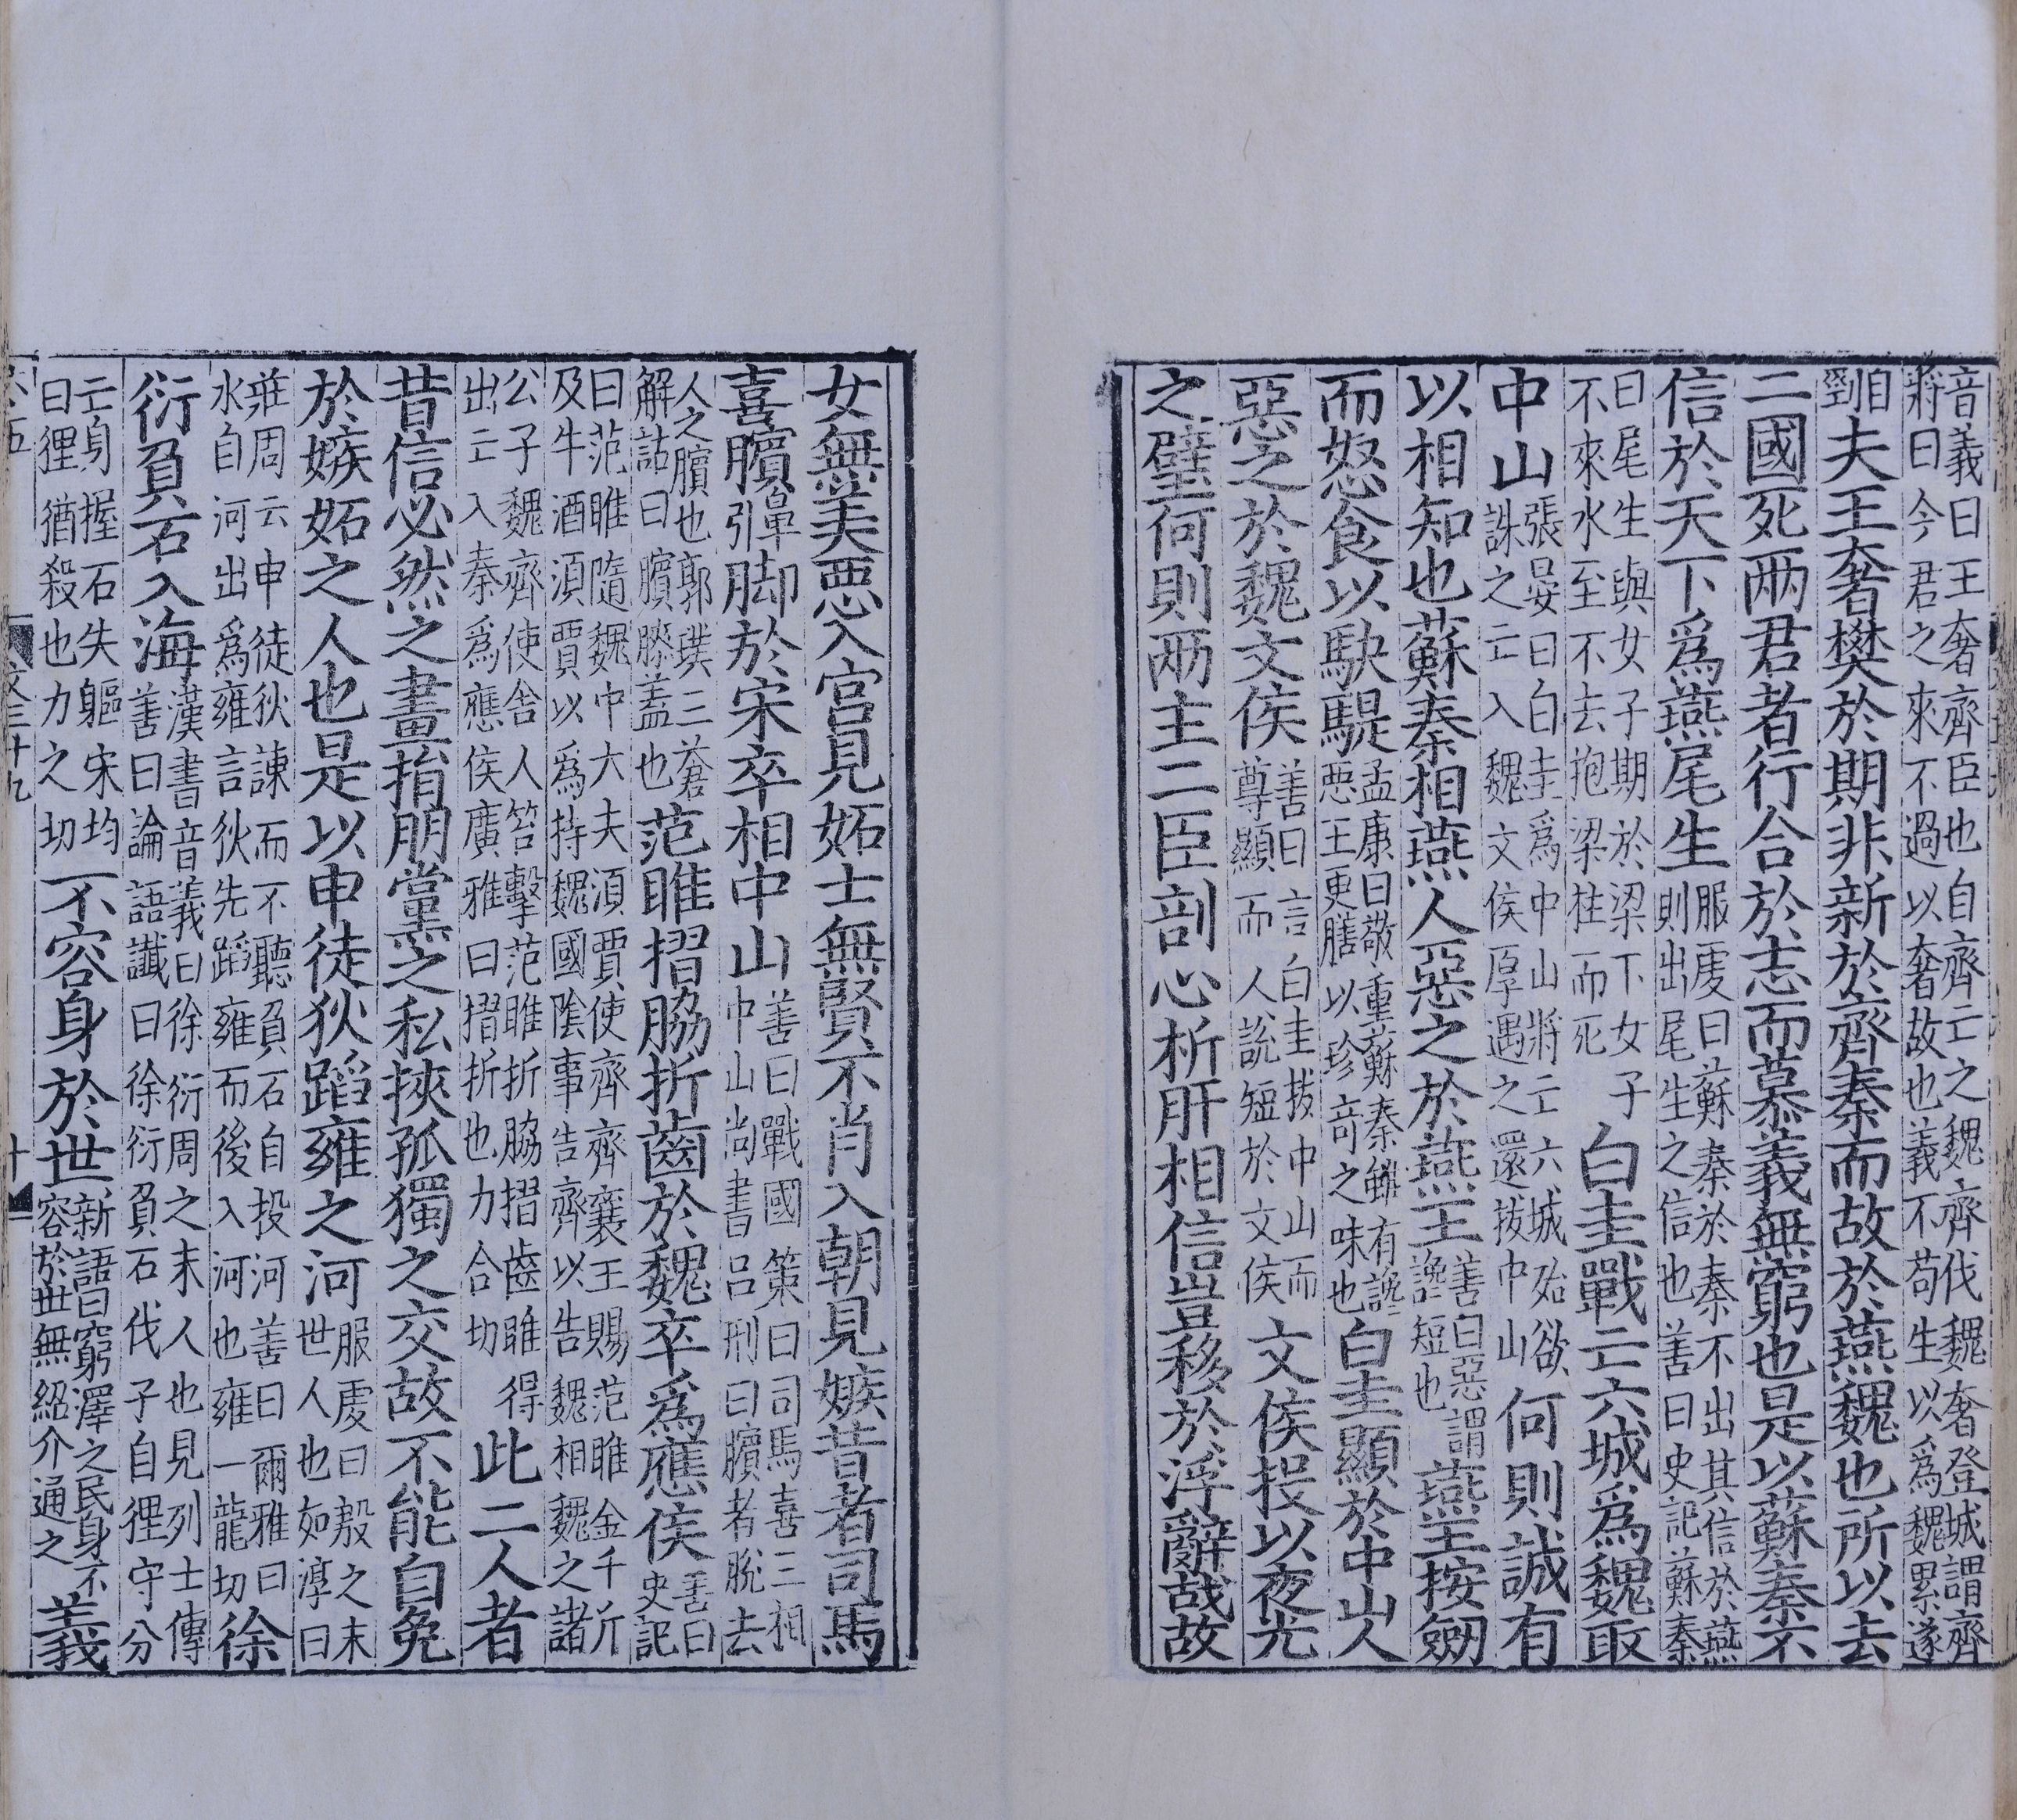 音義曰王奢齊臣也自齊亡之魏齊伐魏奢登城謂齊
將曰今君之來不過以奢故也義不苟生以爲魏累遂
自剄夫王奢樊於期非新於齊秦而故於燕魏也所以去
二國死兩君者行合於志而慕義無窮也是以蘇秦不
信於天下爲燕尾生服虔曰蘇秦於秦不出其信於燕則出尾生之信也善曰史記蘇秦
曰尾生與女子期於梁下女子不來水至不去抱梁柱而死白圭戰亡六城爲魏取
中山張晏曰白圭爲中山將亡六城殆欲誅之亡入魏文侯厚遇之還拔中山何則誠有
以相知也蘇秦相燕人惡之於燕王善曰惡謂讒短也燕王按劒
而怒食以駃騠孟康曰敬重蘇秦雖有讒惡王更膳以珍奇之味也白圭顯於中山人
惡之於魏文侯善曰言白圭拔中山而尊顯而人說短於文侯文侯投以夜光
之璧何則兩主二臣剖心析肝相信豈移於浮辭哉故
女無美惡入宮見妬士無賢不肖入朝見嫉昔者司馬
喜臏鼻引脚於宋卒相中山善曰戰國策曰司馬喜三相中山尚書呂刑曰臏者脫去
人之臏也郭璞三蒼解詁曰臏膝蓋也范睢摺脇折齒於魏卒爲應侯善曰史記
曰范睢隨魏中大夫湏賈使齊齊襄王賜范睢金千斤
及牛酒湏賈以爲持魏國陰事告齊以告魏相魏之諸
公子魏齊使舍人笞擊范睢折脇摺齒睢得出亡入秦爲應侯廣雅曰摺折也力合切此二人者
昔信必然之畫捐朋黨之私挾孤獨之交故不能自免
於嫉妬之人也是以申徒狄蹈雍之河服虔曰殷之末世人也如淳曰
莊周云申徒狄諫而不聽負石自投河善曰爾雅曰水自河出爲雍言狄先蹈雍而後入河也雍一龍切徐
衍負石入海漢書音義曰徐衍周之末人也見列士傳善曰論語讖曰徐衍負石伐子自狸守分
亡身握石失軀宋均曰狸猶殺也力之切不容身於世新語曰窮澤之民身不容於世無紹介通之義
文三十九
十